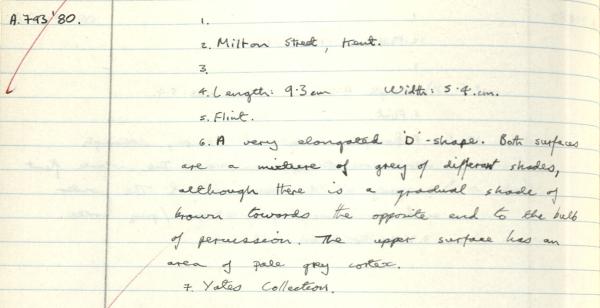 A.793'80.
1.
2. Milton Street, Kent.
3.
4. Length: 9.3 cm Width: 5.4.cm.
5. Flint.
6. A very elongated 'D'-shape. Both surfaces
are a mixture of grey of different shades,
although there is a gradual shade of
brown towards the opposite end to the bulb
of percussion. The upper surface has an
area of pale grey cortex.
7. Yates Collection.